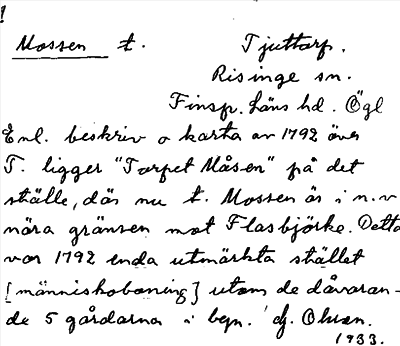 Mossen t. Tjuttorp.
Risinge sn.
Finsp. läns hd. Ögl
Enl. beskriv o karta av 1792 över
T. ligger "Torpet Måsen" på det
ställe, där nu t. Mossen är i n.v
nära gränsen mot Flasbjörke. Detta
var 1792 enda utmärkta stället
[människoboning] utom de dåvaran-
de 5 gårdarna i byn.
1933.